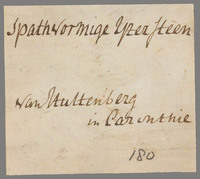 Spathvormige Yzer steen
van Huttenberg
in Carinthie
180